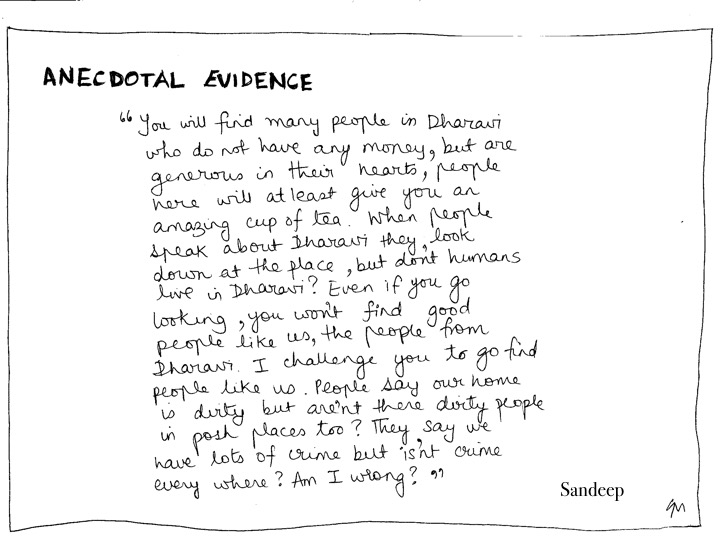 ANECDOTAL EVIDENCE
“You will find many people in Dharavi
who do not have any money, but are
generous in their hearts, people
here will atleast give you an
amazing cup of tea. When people
speak about Dharavi they, look
down at the place, but don't humans
live in Dharavi? Even if you go
looking, you won't find good
people like us, the people from
Dharavi. I challenge you to go find
people like us. People say our home
is dirty but are'nt there dirty people
in posh places too? They say we
have lots of crime but is'nt crime
every where? Am I wrong?”
Sandeep
SM